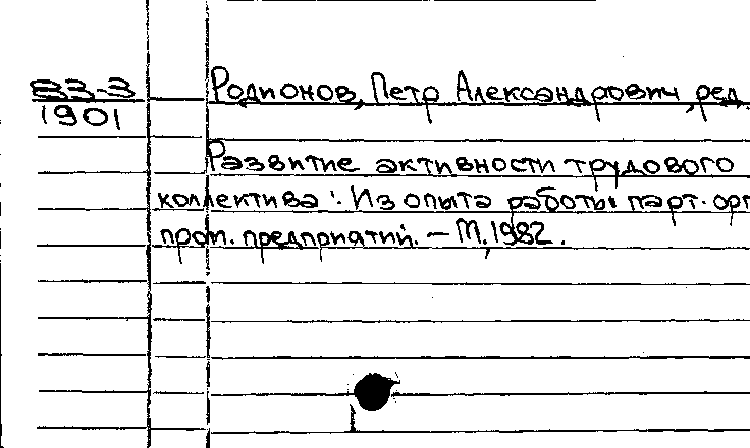 83-3
1901
Родионов, Петр Александрович, ред.
Развитие активности трудового
коллектива: Из опыта работы парт. орг
пром. предприятий. – М., 1982.